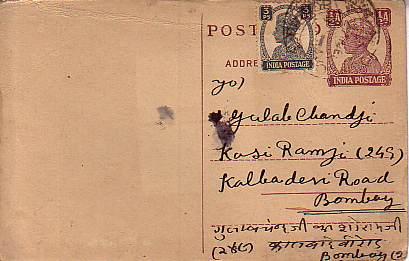 POST
3 Ps
½A ½A
ADDRE
INDIA POSTAGE INDIA POSTAGE
To)
Gulab Chandji
Kasi Ramji (249)
Kalbadevi Road
Bombay
गुलाबचंदजी काशीरामजी
(२४९) कालबादेवी रोड
Bombay (2